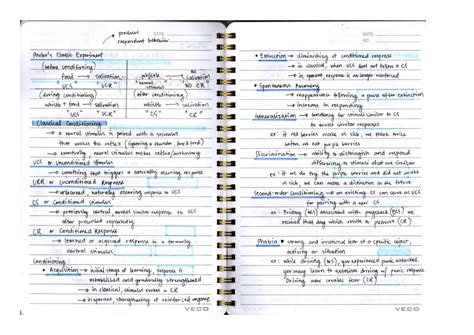 produces
respondent behavior
Pavlov's Classic Experiment
(before conditioning)
food → salivation
UCS "UCR"
whistle → no salivation
NS NO CR
(during conditioning)
whistle + food → salivation
(after conditioning)
whistle → salivation
"CS" "CR"
Classical Conditioning
→ a neutral stimulus is paired with a stimulus
that evokes the reflex
→ eventually neutral stimulus evokes reflex
UCS or Unconditioned Stimulus
→ something that triggers a naturally occurring response
UCR or Unconditioned Response
→ unlearned, naturally occurring response to UCS
CS or Conditioned Stimulus
→ previously neutral, evokes similar response to UCS
after presented repeatedly
CR or Conditioned Response
→ learned or acquired response to a formerly
neutral stimulus
Conditioning:
• Acquisition → initial stage of learning, response is
established and gradually strengthened
→ in classical, stimulus evokes a CR
→ in operant, strengthening of reinforced response
VECO
DATE
NO
• Extinction → diminishing of conditioned response
→ in classical, when UCS does not follow a CS
→ in operant, response is no longer reinforced
• Spontaneous Recovery
→ reappearance following a pause after extinction
→ increase in responding
Generalization → tendency for stimuli similar to CS
to evoke similar responses
ex: if red berries make us sick, we think twice
before we eat purple berries
Discrimination → ability to distinguish and respond
differently to stimuli that are similar
ex: if we do try the purple berries and did not make
us sick, we can make a distinction in the future
Second-order Conditioning → an existing CS can serve as UCS
for pairing with a new CS
ex: Friday (NS) associated with paycheck (CS)
Phobia → strong and irrational fear of a specific object,
activity or situation
ex: while driving (NS), you experienced panic attacked.
you may learn to associate driving w/ panic response.
Driving now creates fear (CR)
VECO